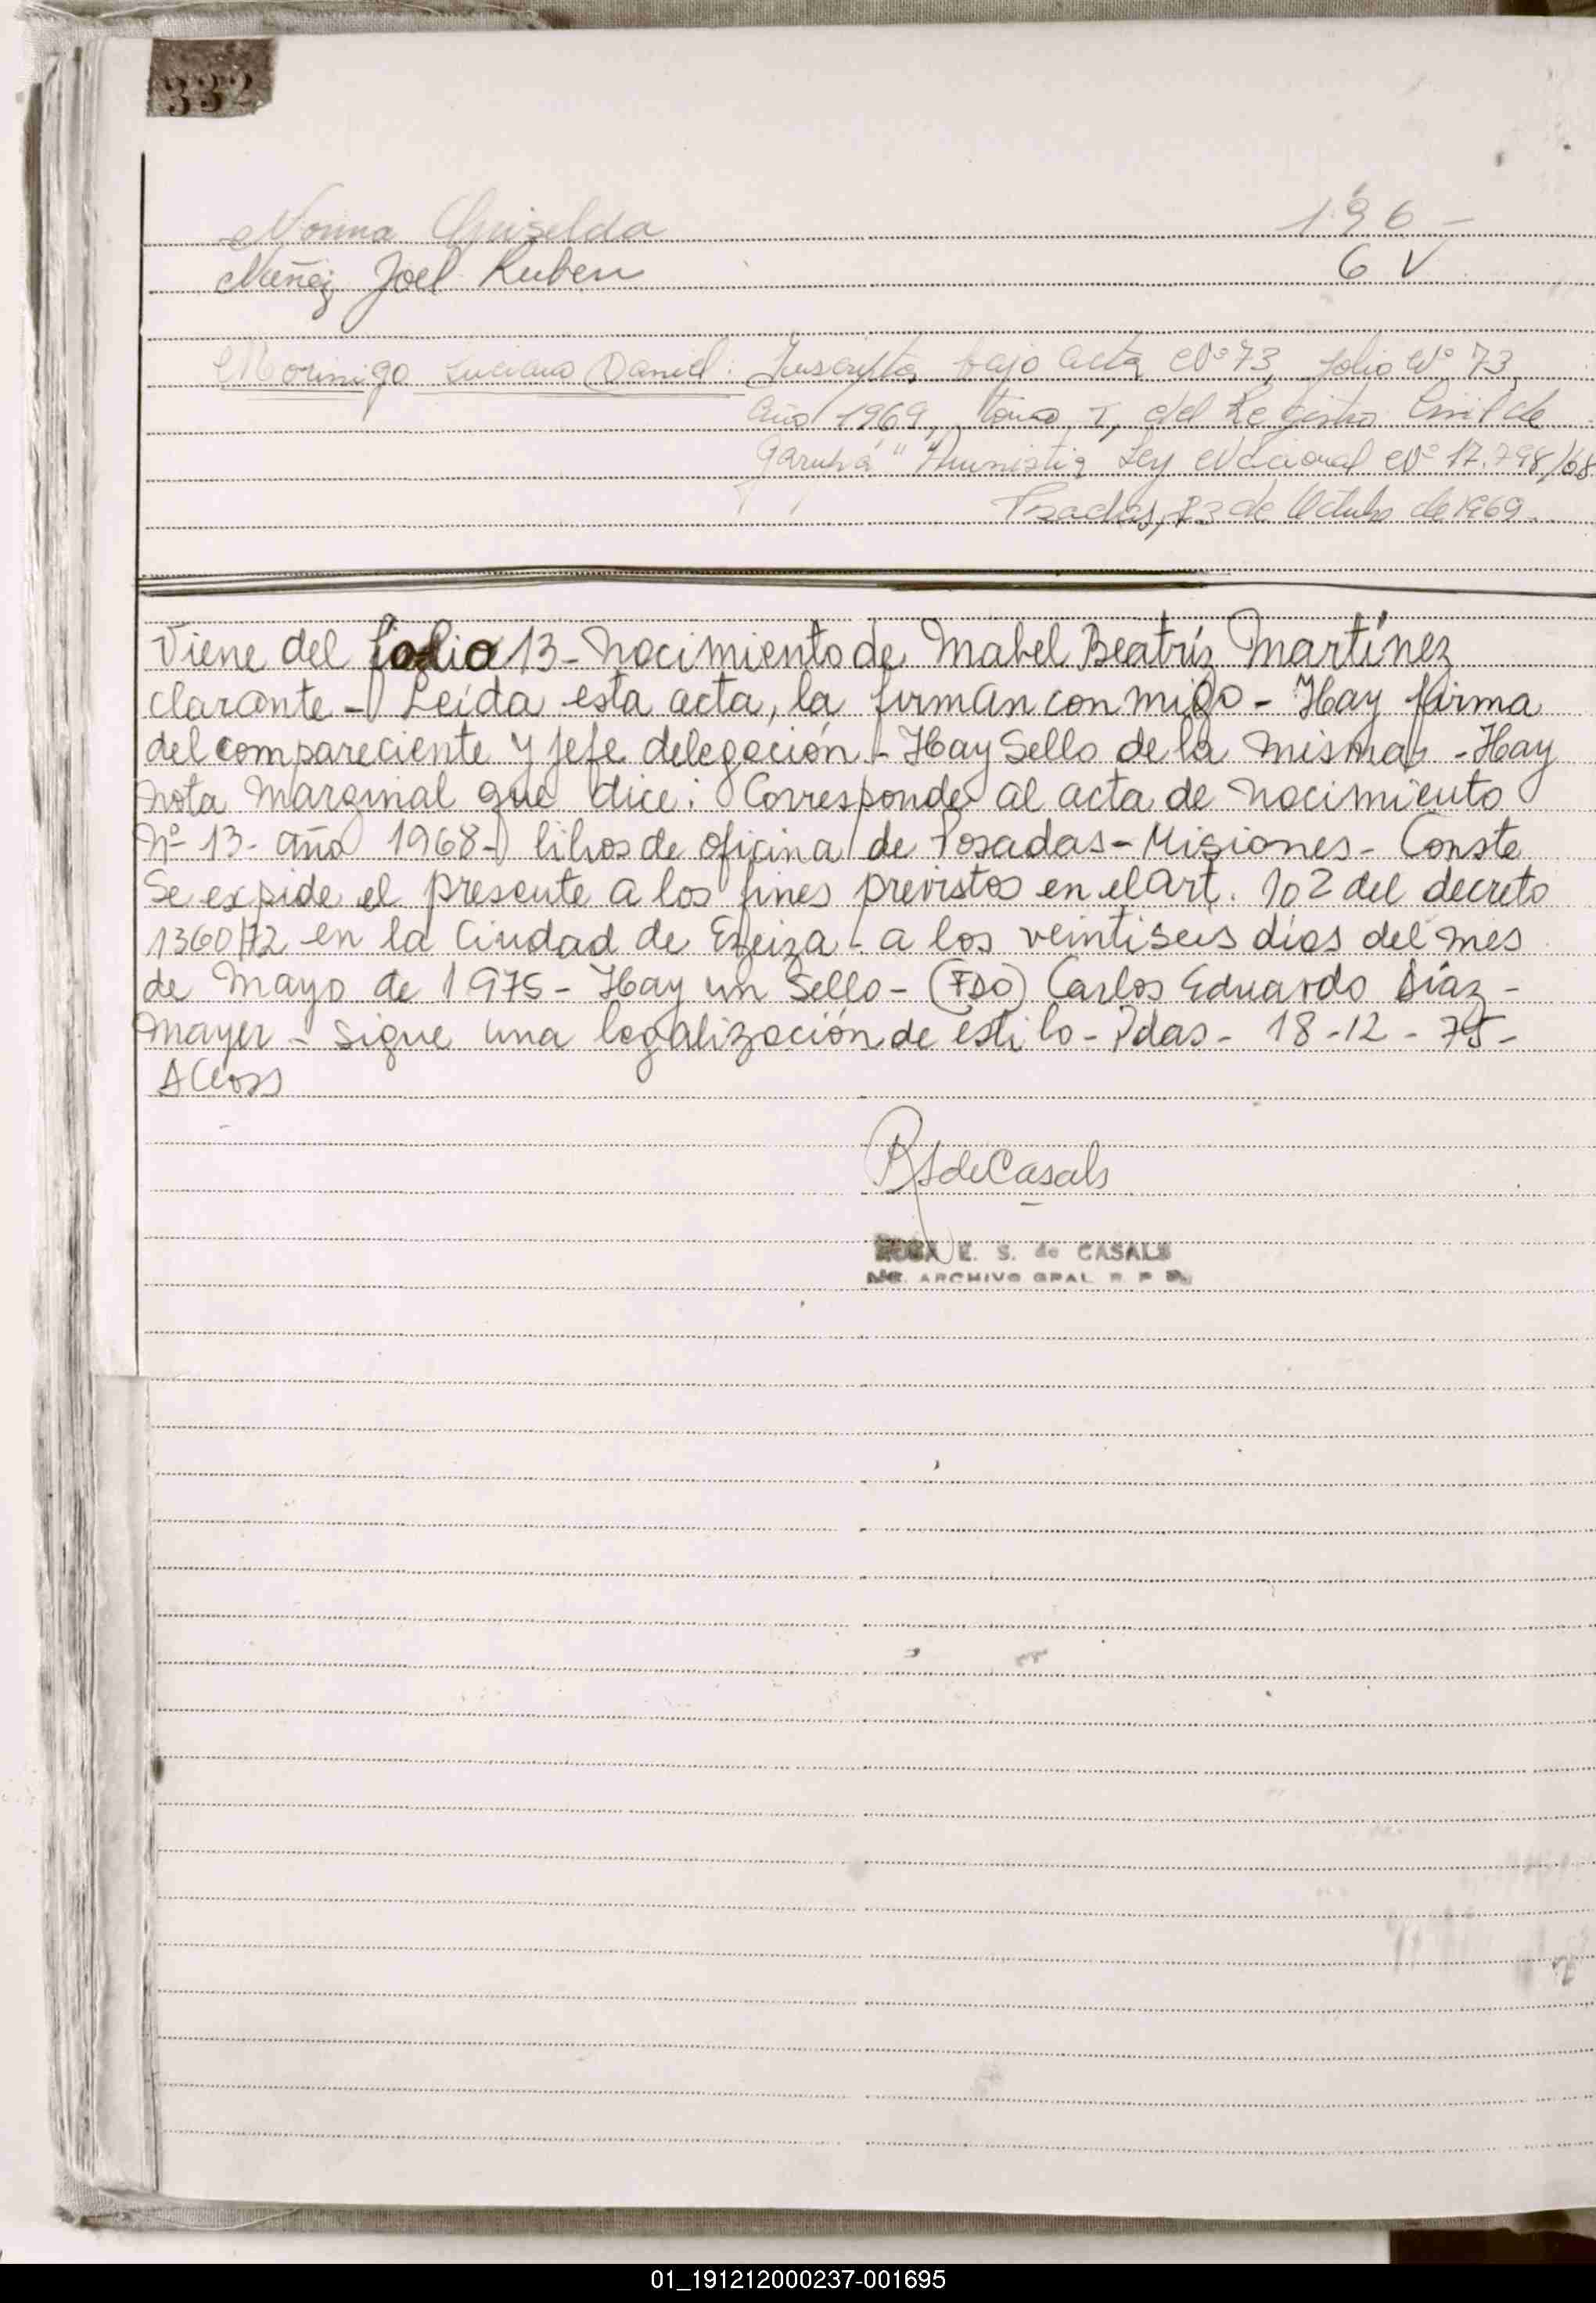 332
Norma Griselda 196 -
Nuñez Joel Ruben 6 V
Morinigo Luciano Daniel: Inscripto bajo acta Nº 73, folio Nº 73,
año 1969, tomo I, del Registro Civil de
Garupá "Amnistia Ley Nacional Nº 17.798/68
Posadas, 23 de Octubre de 1969
Viene del folio 13 - Nacimiento de Mabel Beatríz Martínez
clarante - Leída esta acta, la firman con migo - Hay firma
del compareciente y jefe delegación - Hay Sello de la misma - Hay
nota Marginal que dice: Corresponde al acta de nacimiento
Nº 13 - año 1968 - libros de oficina de Posadas - Misiones - Conste
Se expide el presente a los fines previstos en el art. 102 del decreto
1360/72 en la Ciudad de Ezeiza - a los veintiseis días del mes
de Mayo de 1975 - Hay un Sello - (FDO) Carlos Eduardo Díaz -
Mayer - Sigue una legalización de estilo - Pdas - 18 - 12 - 75 -
RS de Casals
ROSA E. S. de CASALS
ARCHIVO GRAL. R. P.
01_191212000237-001695